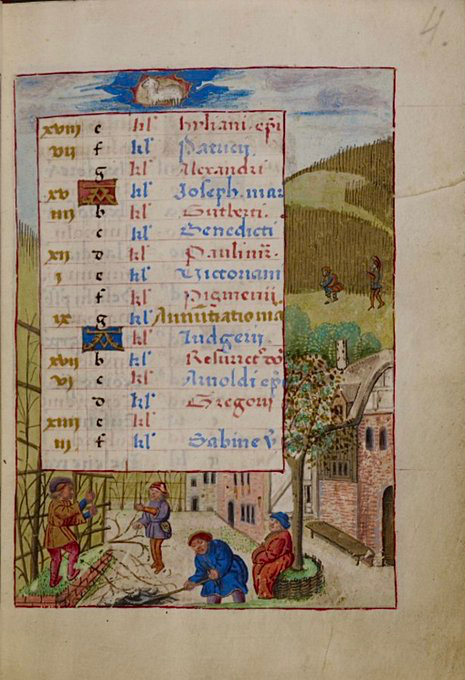 4.
xviii e kl
vii f kl Patricii
g kl Alexandri
xv A kl Joseph. mar
iiii b kl Gutberti.
c kl Benedicti
xii d kl Paulini
i e kl Victoriani
f kl Pigmenii.
ix g kl Annūtiatio ma
A kl Ludgerii.
xvii b kl Resurrect
vi c kl Arnoldi epi
d kl Gregorii
xiiii e kl
iii f kl Sabine v